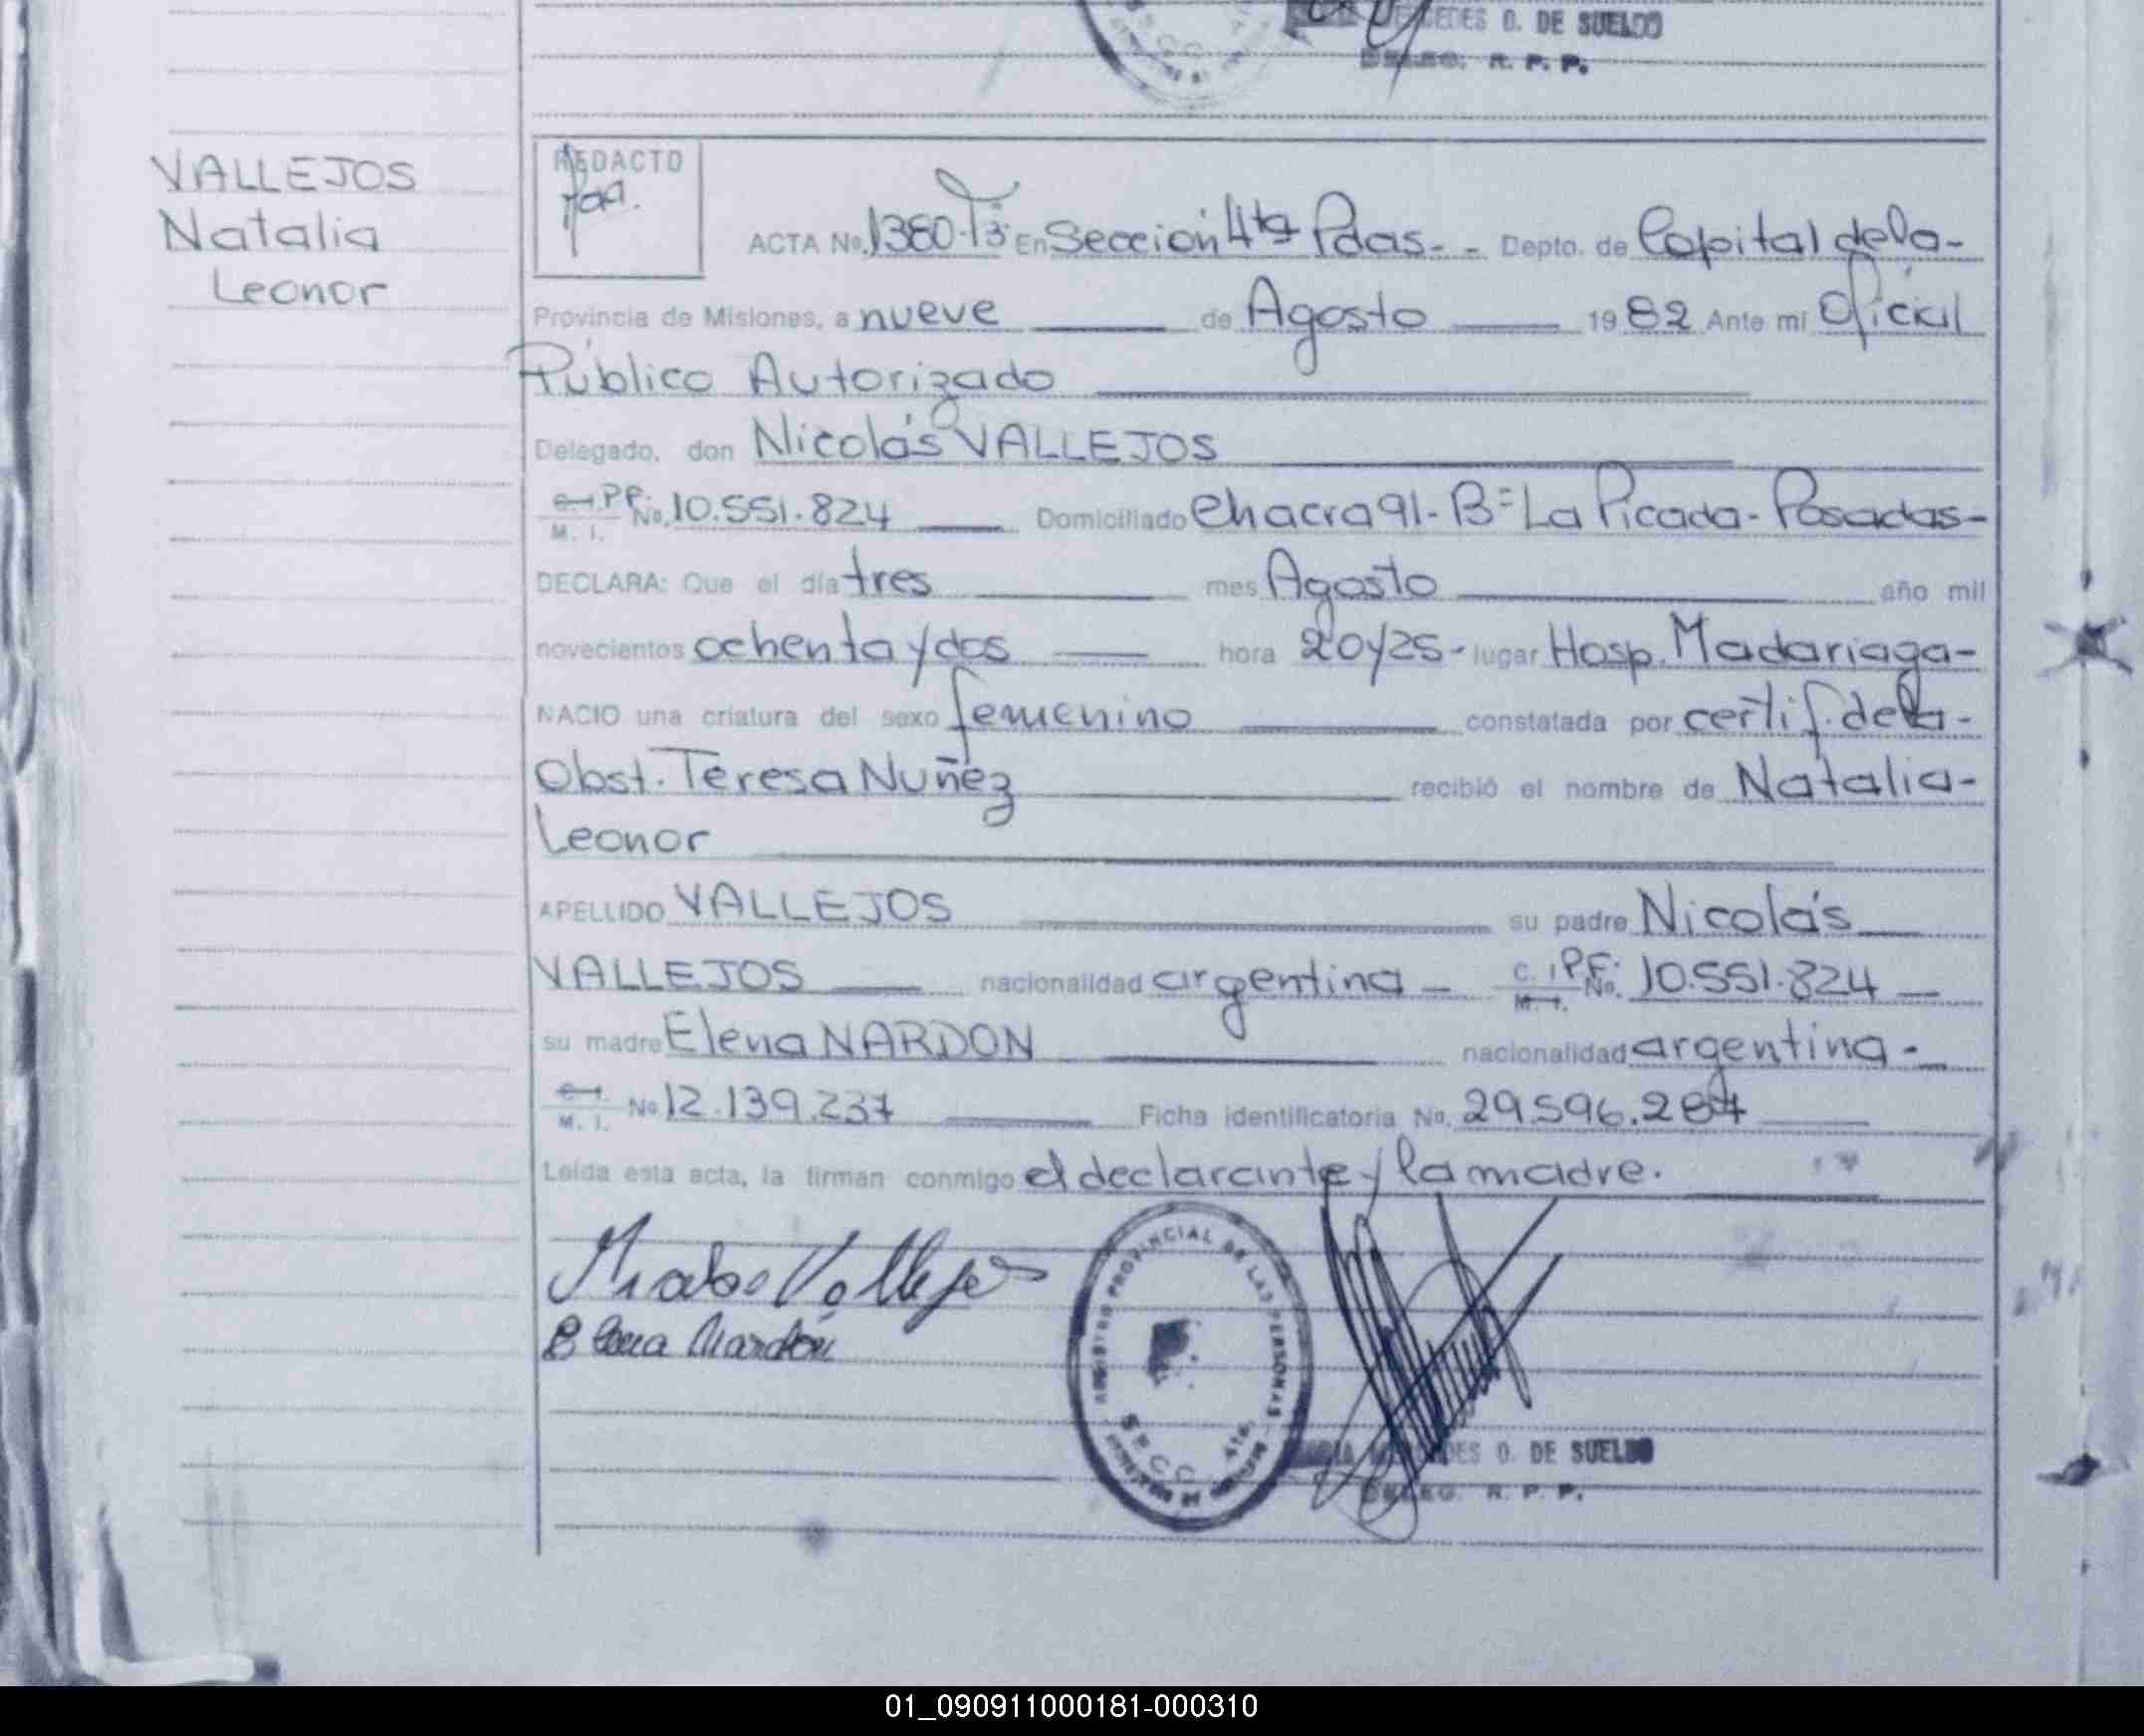 MERCEDES O. DE SUELDO
DELEG. R. P. P.
VALLEJOS
Natalia
Leonor
REDACTO
ACTA No. 1380-T3: En Sección 4ta Pdas.- - Depto. de Capital de la-
Provincia de Misiones, a nueve de Agosto 1982 Ante mi Oficial
Público Autorizado
Delegado, don Nicolás VALLEJOS
C.I. P.F. No. 10.551.824 Domiciliado Chacra 91- Bº La Picada- Posadas-
M. I.
DECLARA: Que el día tres mes Agosto año mil
novecientos ochenta y dos hora 20y25- lugar Hosp. Madariaga-
NACIO una criatura del sexo femenino constatada por certif. de la-
Obst. Teresa Nuñez recibió el nombre de Natalia-
Leonor
APELLIDO VALLEJOS su padre Nicolás
VALLEJOS nacionalidad argentina - C. I. P.F. No. 10.551.824
M. I.
su madre Elena NARDON nacionalidad argentina -
C. I. No 12.139.237 Ficha identificatoria No. 29.596.287
M. I.
Leída esta acta, la firman conmigo el declarante y la madre.
Vallejos
Elena Nardón
REGISTRO PROVINCIAL DE LAS PERSONAS
SECC. 4ta.
MARIA MERCEDES O. DE SUELDO
DELEG. R. P. P.
01_090911000181-000310